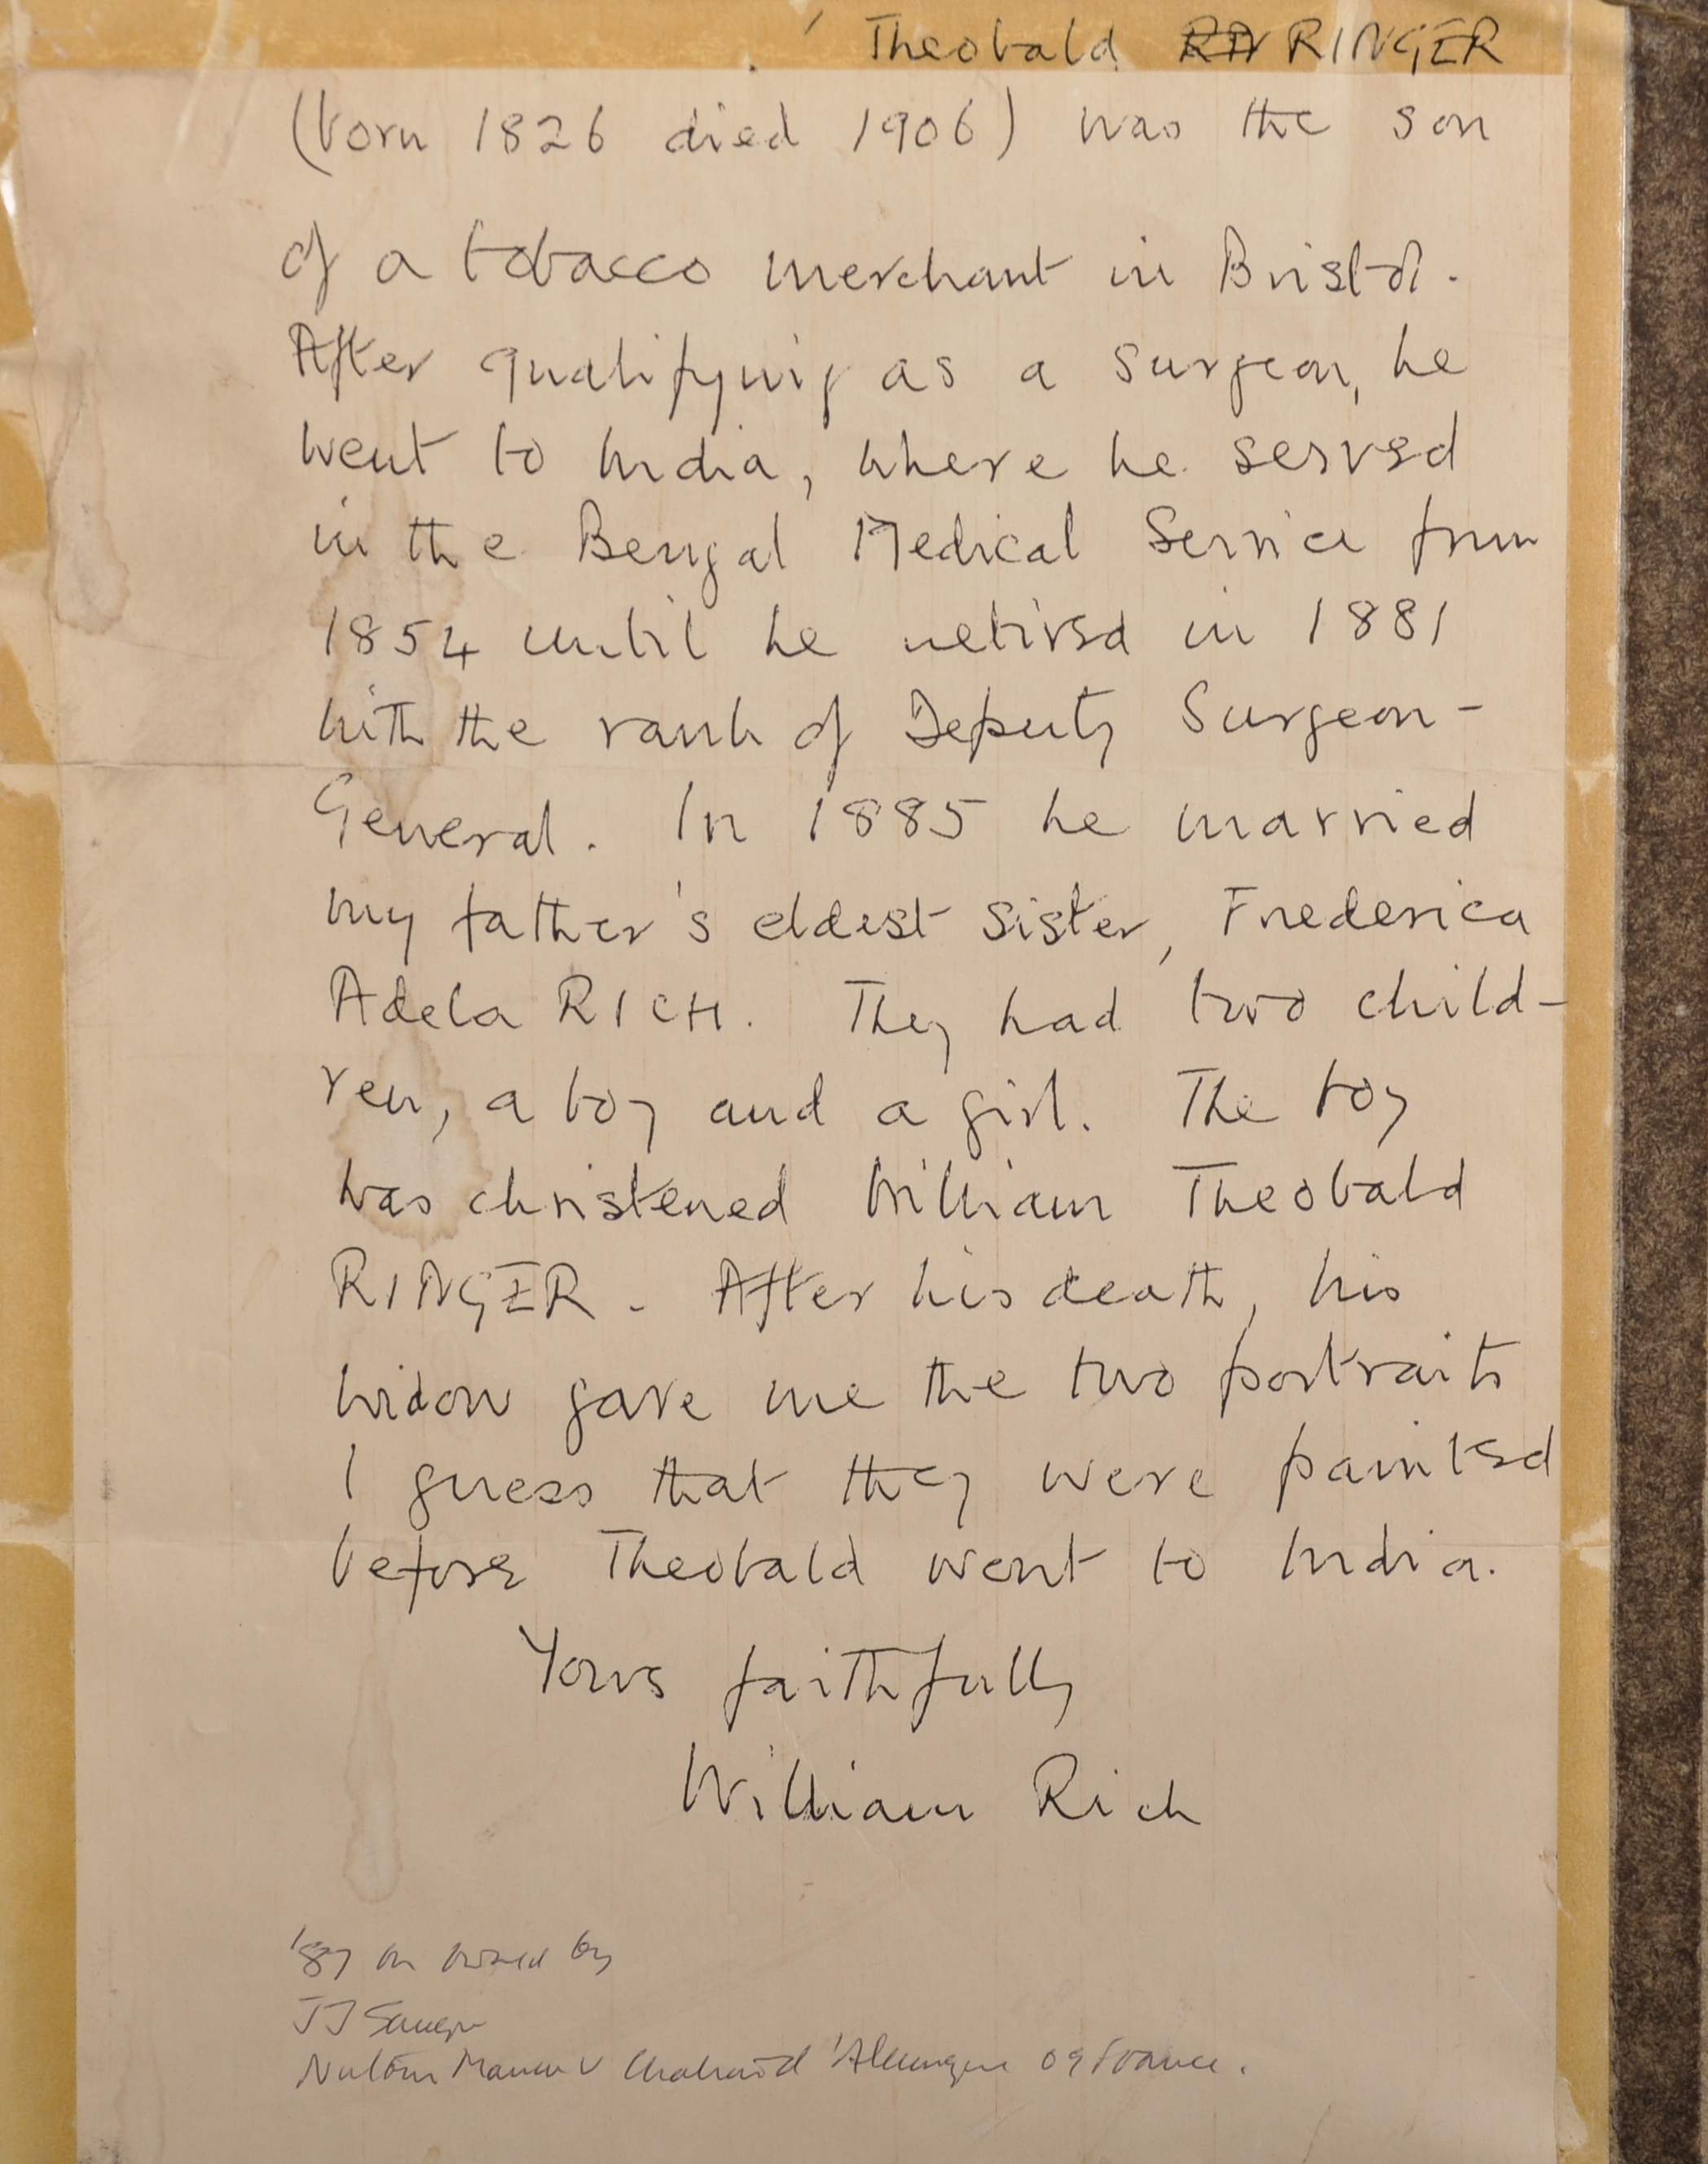 Theobald RIN RINGER
(born 1826 died 1906) was the son
of a tobacco merchant in Bristol.
After qualifying as a surgeon, he
went to India, where he served
in the Bengal Medical Service from
1854 until he retired in 1881
with the rank of Deputy Surgeon-
General. In 1885 he married
my father's eldest sister, Frederica
Adela RICH. They had two child-
ren, a boy and a girl. The boy
was christened William Theobald
RINGER. After his death, his
widow gave me the two portraits
I guess that they were painted
before Theobald went to India.
Yours faithfully
William Rich
'87 owned by
JJ
09 France.